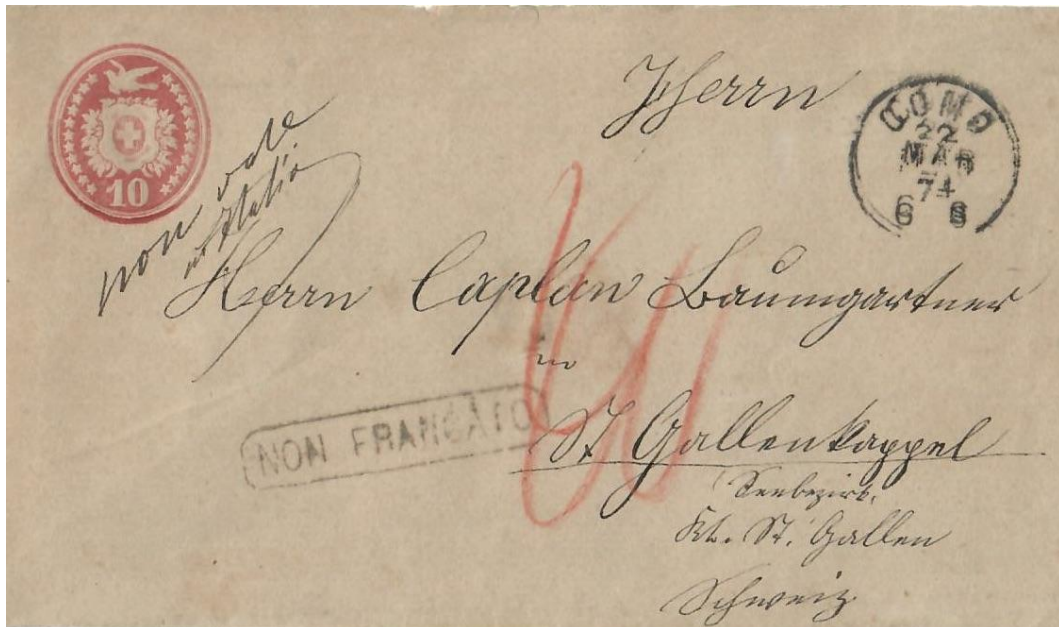 10
non vale
in Italia
Herrn
COMO
22
MAR
74
6 S
Herrn Caplan Baumgartner
in
St Gallenkappel
Seebezirk.
Kt. St. Gallen
Schweiz
NON FRANCATO